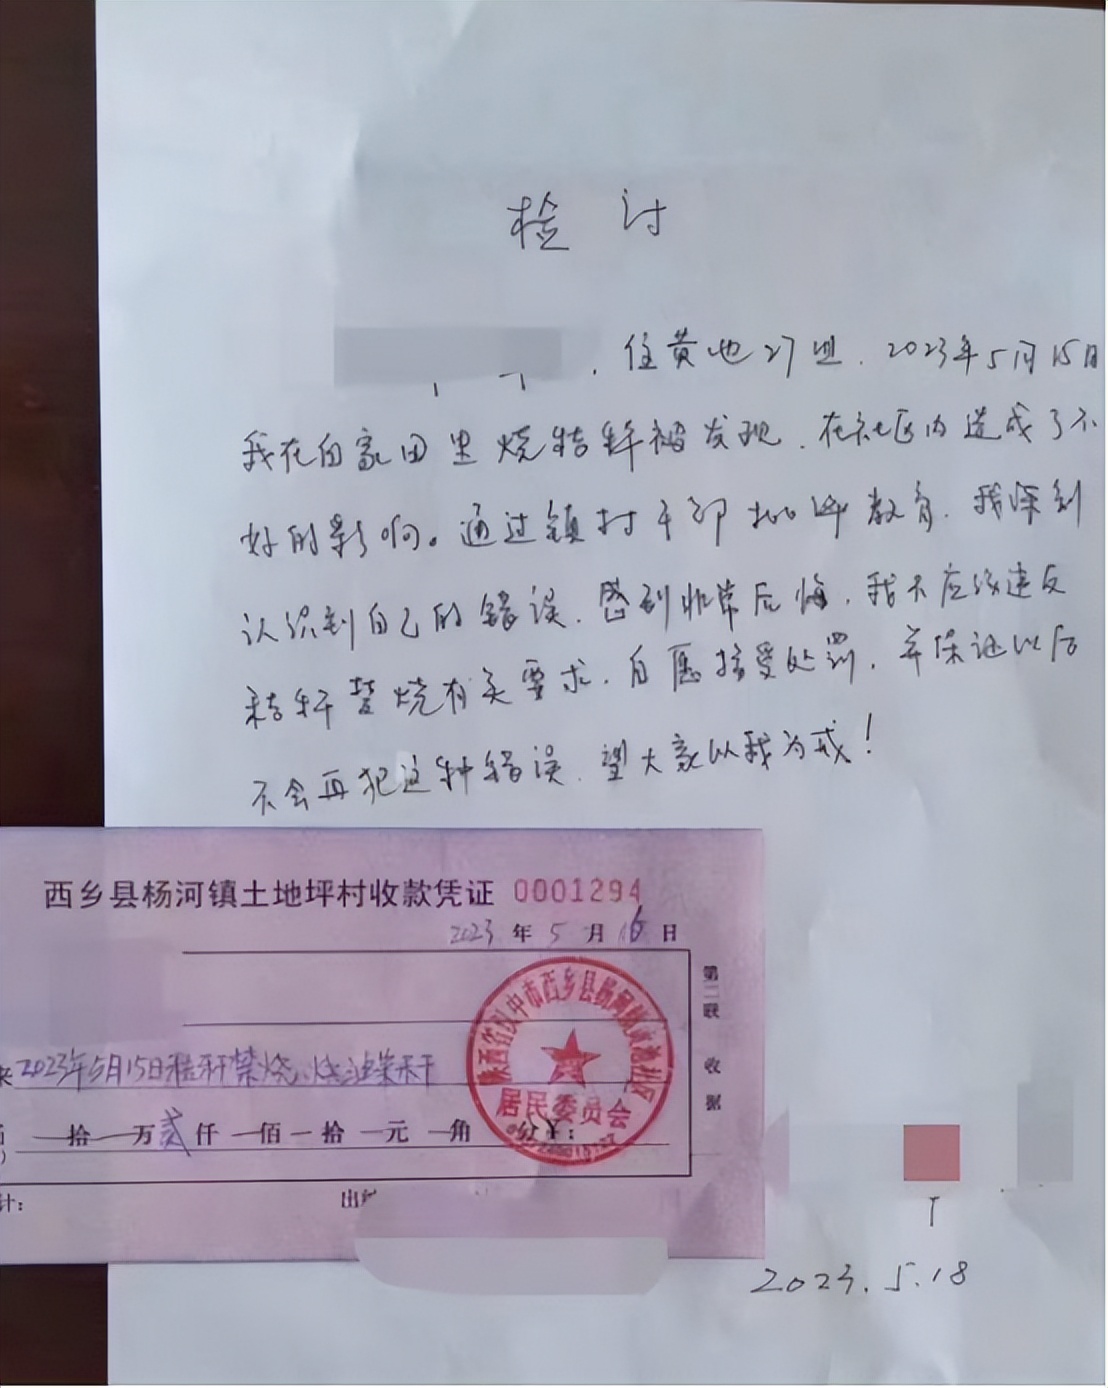 检 讨
住黄池27组. 2023年5月15日
我在自家田里烧秸秆被发现. 在社区内造成了不
好的影响。通过镇村干部批评教育. 我深刻
认识到自己的错误. 感到非常后悔. 我不应该违反
秸秆禁烧有关要求. 自愿接受处罚. 并保证以后
不会再犯这种错误. 望大家以我为戒!
西乡县杨河镇土地坪村收款凭证 0001294
2023 年 5 月 16 日
第二联 收据
陕西省汉中市西乡县杨河镇黄池社区
居民委员会
来2023年5月15日秸秆禁烧、烧油菜秆
拾 万 贰 仟 佰 拾 元 角 ¥:
计:
出纳
2023.5.18